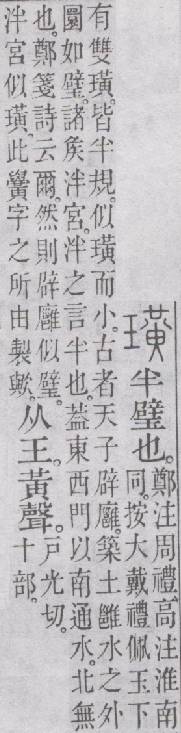 璜半璧也。鄭注周禮、高注淮南
同。按大戴禮佩玉下
有雙璜。皆半規。似璜而小。古者天子辟廱。築土雝水之外
圜如璧。諸矦泮宮。泮之言半也。葢東西門以南通水。北無
也。鄭箋詩云爾。然則辟廱似璧。
泮宮似璜。此黌字之所由製歟。
从王黃聲。戶光切。
十部。